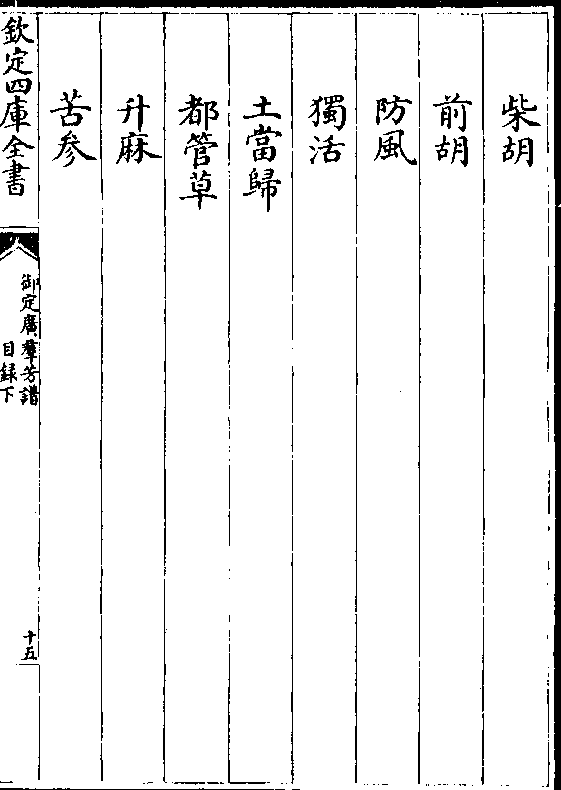 柴胡
前胡
防風
獨活
土當歸
都管草
升麻
苦參
欽定四庫全書
御定廣羣芳譜
目録下
十五